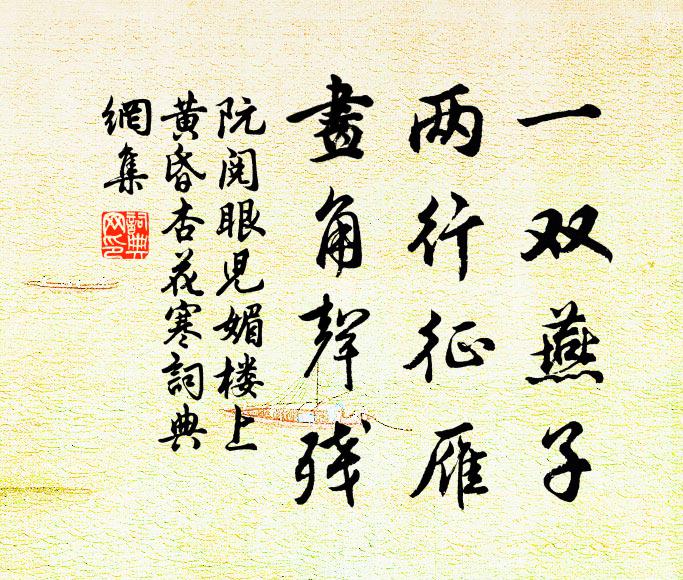 一双燕子
两行征雁
畫角聲残
阮阅眼児媚楼上
黄昏杏花寒詞典
網集
詞典
网印